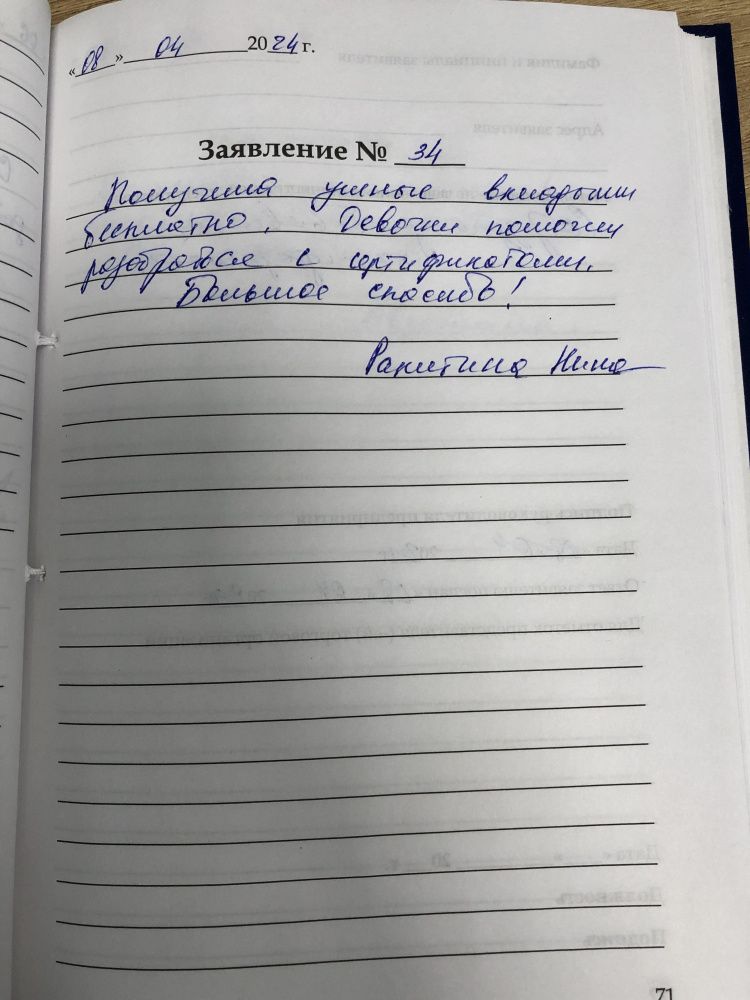 «08» 04 2024 г.
Заявление № 34
Получила ушные вкладыши
бесплатно. Девочки помогли
разобраться с сертификатами.
Большое спасибо!
Ракитина Нина
71